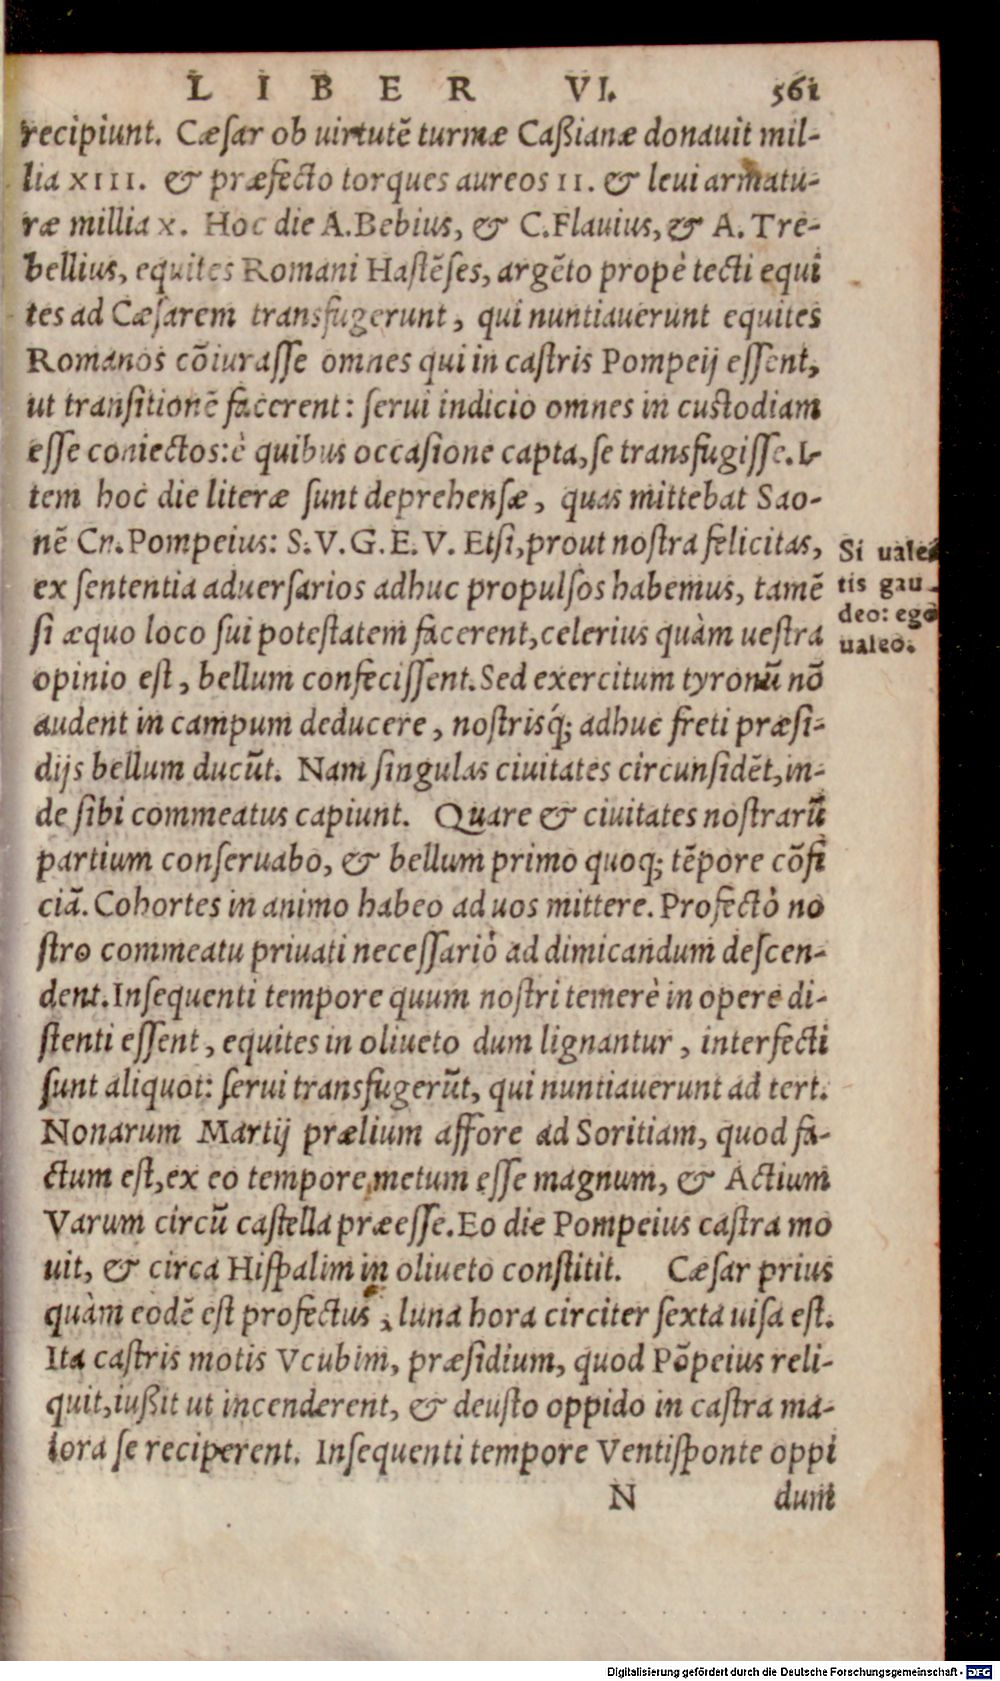 LIBER VI. 561
recipiunt. Cæſar ob uirtutē turmæ Caßianæ donauit mil-
lia XIII. & præfecto torques aureos II. & leui armatu-
ræ millia X. Hoc die A. Bebius, & C. Flauius, & A. Tre-
bellius, equites Romani Haſtēſes, argēto propè tecti equi
tes ad Cæſarem transfugerunt, qui nuntiauerunt equites
Romanos cōiuraſſe omnes qui in caſtris Pompeij eſſent,
ut tranſitionē facerent: ſerui indicio omnes in custodiam
eſſe coniectos: è quibus occaſione capta, ſe transfugiſſe. I-
tem hoc die literæ ſunt deprehenſæ, quas mittebat Sao-
nē Cn. Pompeius: S. V. G. E. V. Etſi, prout noſtra felicitas,
ex ſententia aduerſarios adhuc propulſos habemus, tamē
ſi æquo loco ſui poteſtatem facerent, celerius quàm ueſtra
opinio eſt, bellum confeciſſent. Sed exercitum tyronū nō
audent in campum deducere, noſtrisq́; adhuc freti præſi-
dijs bellum ducūt. Nam ſingulas ciuitates circunſidēt, in-
de ſibi commeatus capiunt. Quare & ciuitates noſtrarū
partium conſeruabo, & bellum primo quoq; tēpore cōfi
ciā. Cohortes in animo habeo ad uos mittere. Profectò no
ſtro commeatu priuati neceſſariò ad dimicandum deſcen-
dent. Inſequenti tempore quum noſtri temerè in opere di-
ſtenti eſſent, equites in oliueto dum lignantur, interfecti
ſunt aliquot: ſerui transfugerūt, qui nuntiauerunt ad tert.
Nonarum Martij prælium affore ad Soritiam, quod fa-
ctum eſt, ex eo tempore metum eſſe magnum, & Actium
Varum circū caſtella præeſſe. Eo die Pompeius caſtra mo
uit, & circa Hiſpalim in oliueto conſtitit. Cæſar prius
quàm eodē eſt profectus, luna hora circiter ſexta uiſa eſt.
Ita caſtris motis Vcubim, præſidium, quod Pōpeius reli-
quit, iußit ut incenderent, & deuſto oppido in caſtra ma-
iora ſe reciperent. Inſequenti tempore Ventiſponte oppi
N dum
Si uale
tis gau
deo: ego
ualeo.
Digitalisierung gefördert durch die Deutsche Forschungsgemeinschaft - DFG